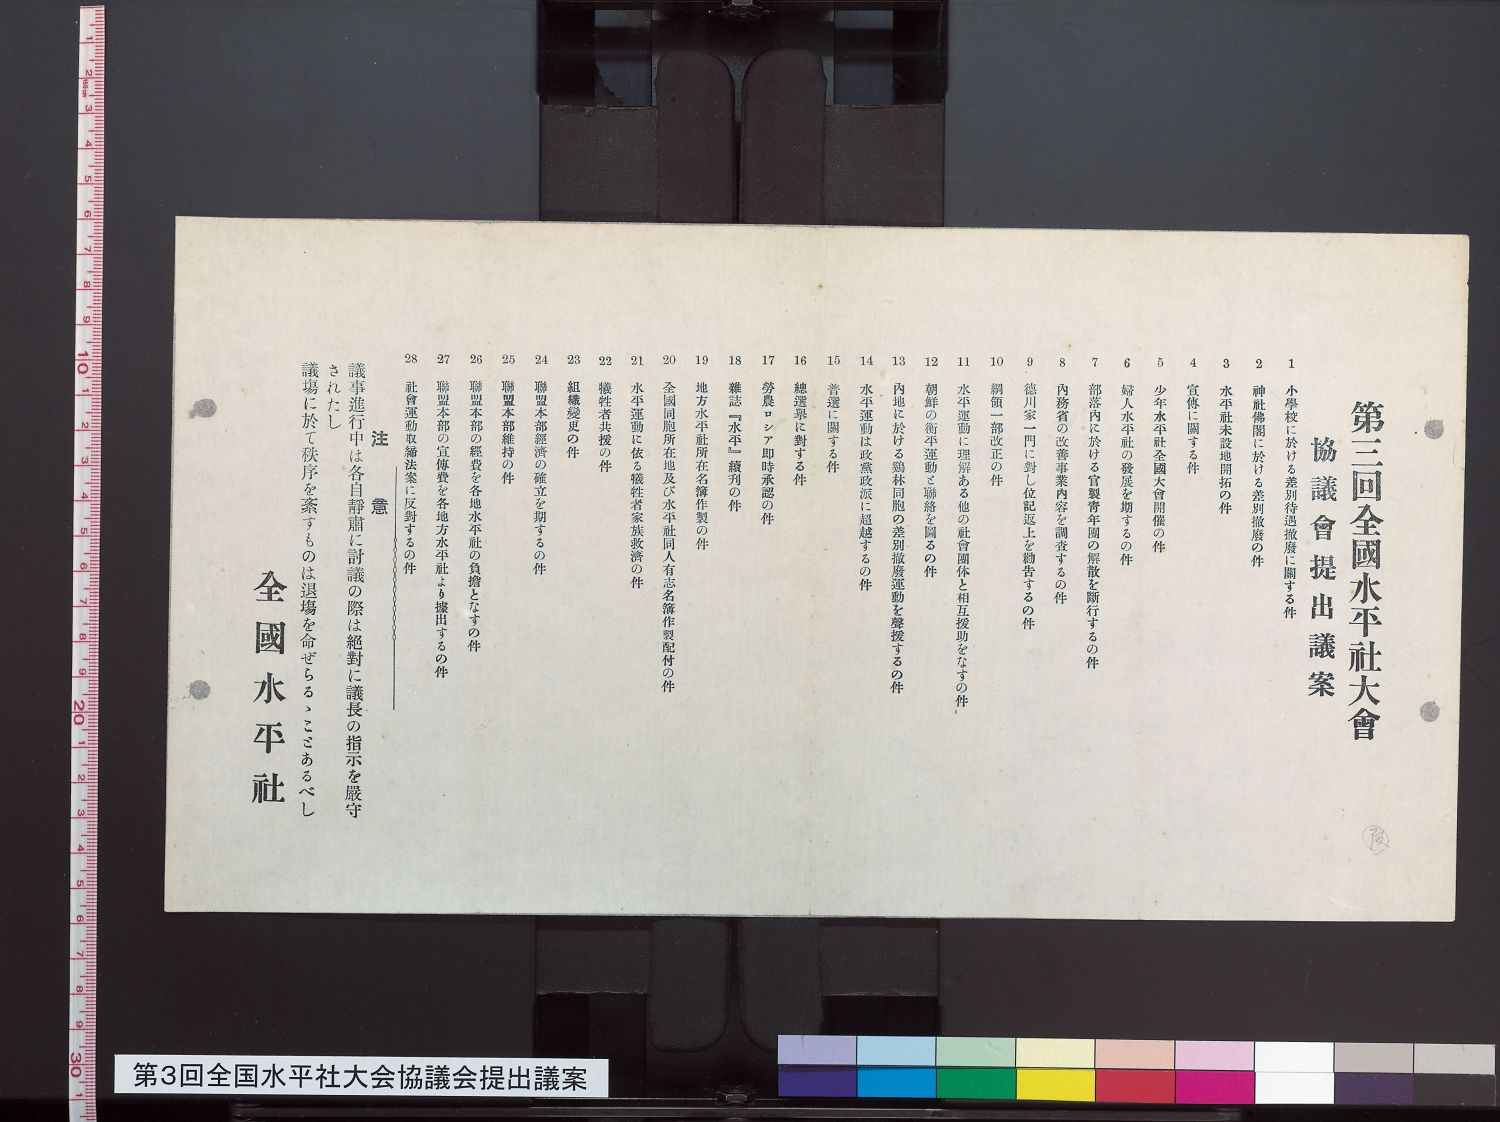 第三回全國水平社大會
協議會提出議案
1 小學校に於ける差別待遇撤廢に關する件
2 神社佛閣に於ける差別撤廢の件
3 水平社未設地開拓の件
4 宣傳に關する件
5 少年水平社全國大會開催の件
6 婦人水平社の發展を期するの件
7 部落內に於ける官製靑年團の解散を斷行するの件
8 內務省の改善事業內容を調査するの件
9 德川家一門に對し位記返上を勸告するの件
10 綱領一部改正の件
11 水平運動に理解ある他の社會團体と相互援助をなすの件
12 朝鮮の衡平運動と聯絡を圖るの件
13 內地に於ける鷄林同胞の差別撤廢運動を聲援するの件
14 水平運動は政黨政派に超越するの件
15 普選に關する件
16 總選擧に對する件
17 勞農ロシア即時承認の件
18 雜誌『水平』續刋の件
19 地方水平社所在名簿作製の件
20 全國同胞所在地及び水平社同人有志名簿作製配付の件
21 水平運動に依る犧牲者家族救濟の件
22 犧牲者共援の件
23 組織變更の件
24 聯盟本部經濟の確立を期するの件
25 聯盟本部維持の件
26 聯盟本部の經費を各地水平社の負擔となすの件
27 聯盟本部の宣傳費を各地方水平社より據出するの件
28 社會運動取締法案に反對するの件
注意
議事進行中は各自靜肅に討議の際は絕對に議長の指示を嚴守
されたし
議塲に於て秩序を紊すものは退塲を命ぜらるゝことあるべし
全國水平社
第3回全国水平社大会協議会提出議案